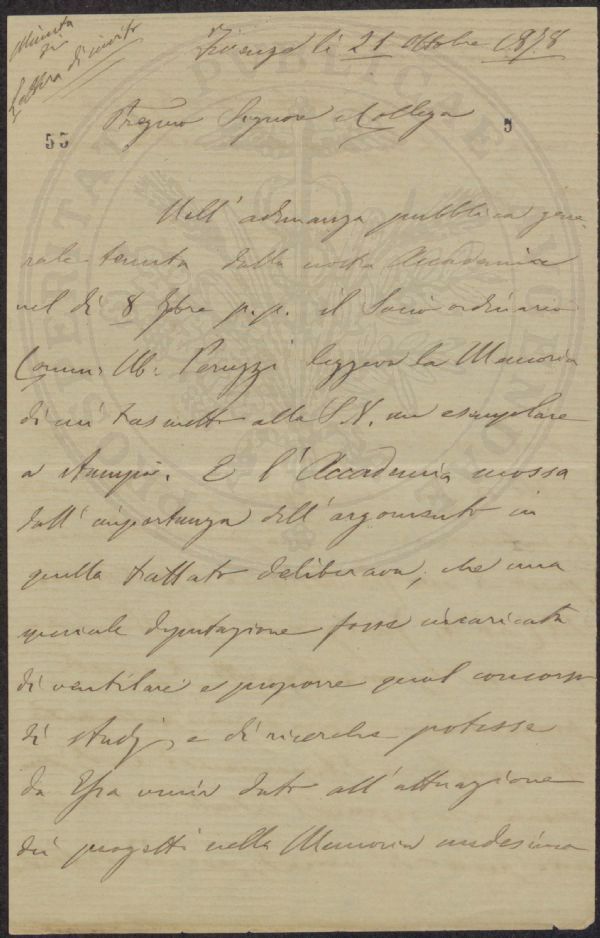 Minuta
di
Lettera d'invito
Firenze li 21 Ottobre 1878
55
Pregmo Signore e Collega
5
Nell' adunanza pubblica gene-
rale tenuta dalla nostra Accademia
nel dì 8 7bre p.p. il Socio ordinario
Comm. Ub. Peruzzi leggeva la Memoria
di cui trasmetto alla S.V. un esemplare
a stampa. E l'Accademia mossa
dall' importanza dell' argomento in
quella trattato deliberava, che una
speciale deputazione fosse incaricata
di ventilare e proporre qual concorso
di studj, e di ricerche potesse
da Essa venir dato all' attuazione
dei progetti nella Memoria medesima